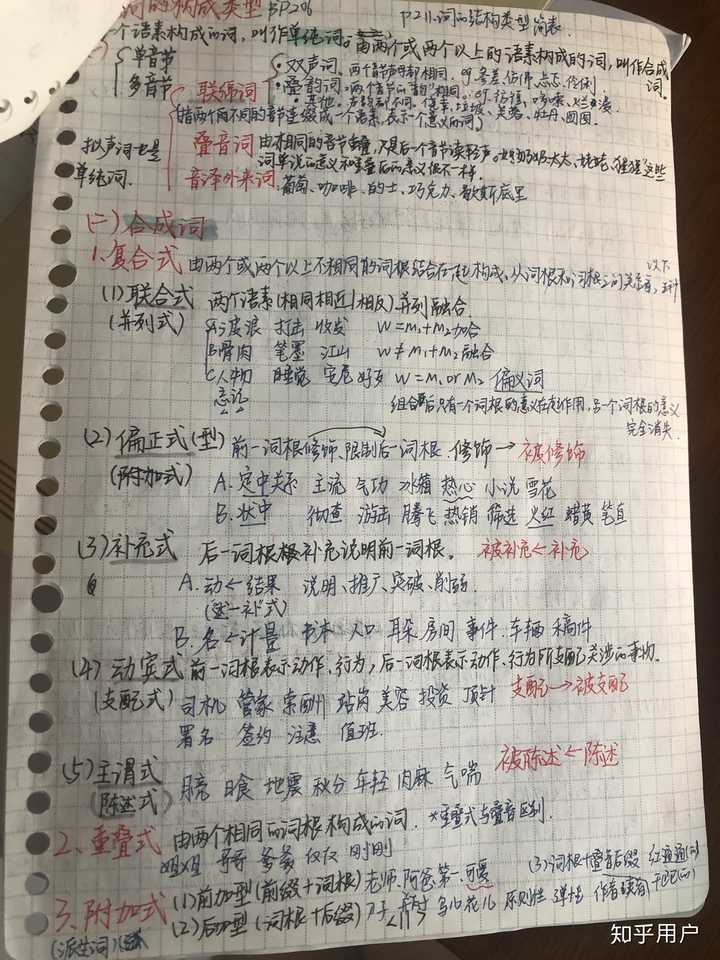 词的构成类型 P206 P211.词的结构类型简表.
个语素构成的词,叫作单纯词。由两个或两个以上的语素构成的词,叫作合成词.
单音节
多音节
联绵词
双声词.两个音节声母相同.
叠韵词.两个音节的"韵"相同.
其他.声韵都不同.
指两个不同的音节连缀成一个语素,表示一个意义的词
芙蓉、牡丹、囫囵.
拟声词也是单纯词.
叠音词 由相同的音节重叠,
词单说的意义和重叠后的意义很不一样.
音译外来词.葡萄、咖啡、的士、巧克力、歇斯底里
(二)合成词
1.复合式 由两个或两个以上不相同的词根结合在一起构成.从词根和词根之间关系看,以下五种
(1)联合式 两个语素(相同相近|相反)并列融合.
(并列式) A.波浪 打击 收发 W=M1+M2加合
B.骨肉 笔墨 江山 W≠M1+M2融合
C.人物 睡觉 安危 好歹 W=M1 or M2 偏义词
忘记 组合后只有一个词根的意义在起作用,另一个词根的意义完全消失.
(2)偏正式(型) 前一词根修饰、限制后一词根.修饰→被修饰
(附加式) A.定中关系 主流 气功 冰箱 热心 小说 雪花
B.状中 彻查 游击 腾飞 热销 筛选 火红 蜡黄 笔直
(3)补充式 后一词根补充说明前一词根。 被补充←补充
A.动←结果 说明、推广、突破、削弱.
B.名←计量 书本 人口 耳朵 房间 事件.车辆 稿件
(4)动宾式 前一词根表示动作、行为,后一词根表示动作、行为所支配关涉的事物.
(支配式) 司机 管家 站岗 美容 投资 顶针 支配→被支配
署名 签约 注意 值班.
(5)主谓式 被陈述←陈述
(陈述式) 月亮 日食 地震 秋分 年轻 肉麻 气喘
2、重叠式 由两个相同的词根构成的词. *重叠式与叠音区别.
姐姐 哥哥 爹爹 仅仅 刚刚
3、附加式 (1)前加型(前缀+词根)老师.阿爸.第一.可爱 (3)词根+叠音后缀 红通通
(派生词) (2)后加型(词根+后缀) 花儿 原则性 弹性 作者 读者
知乎用户